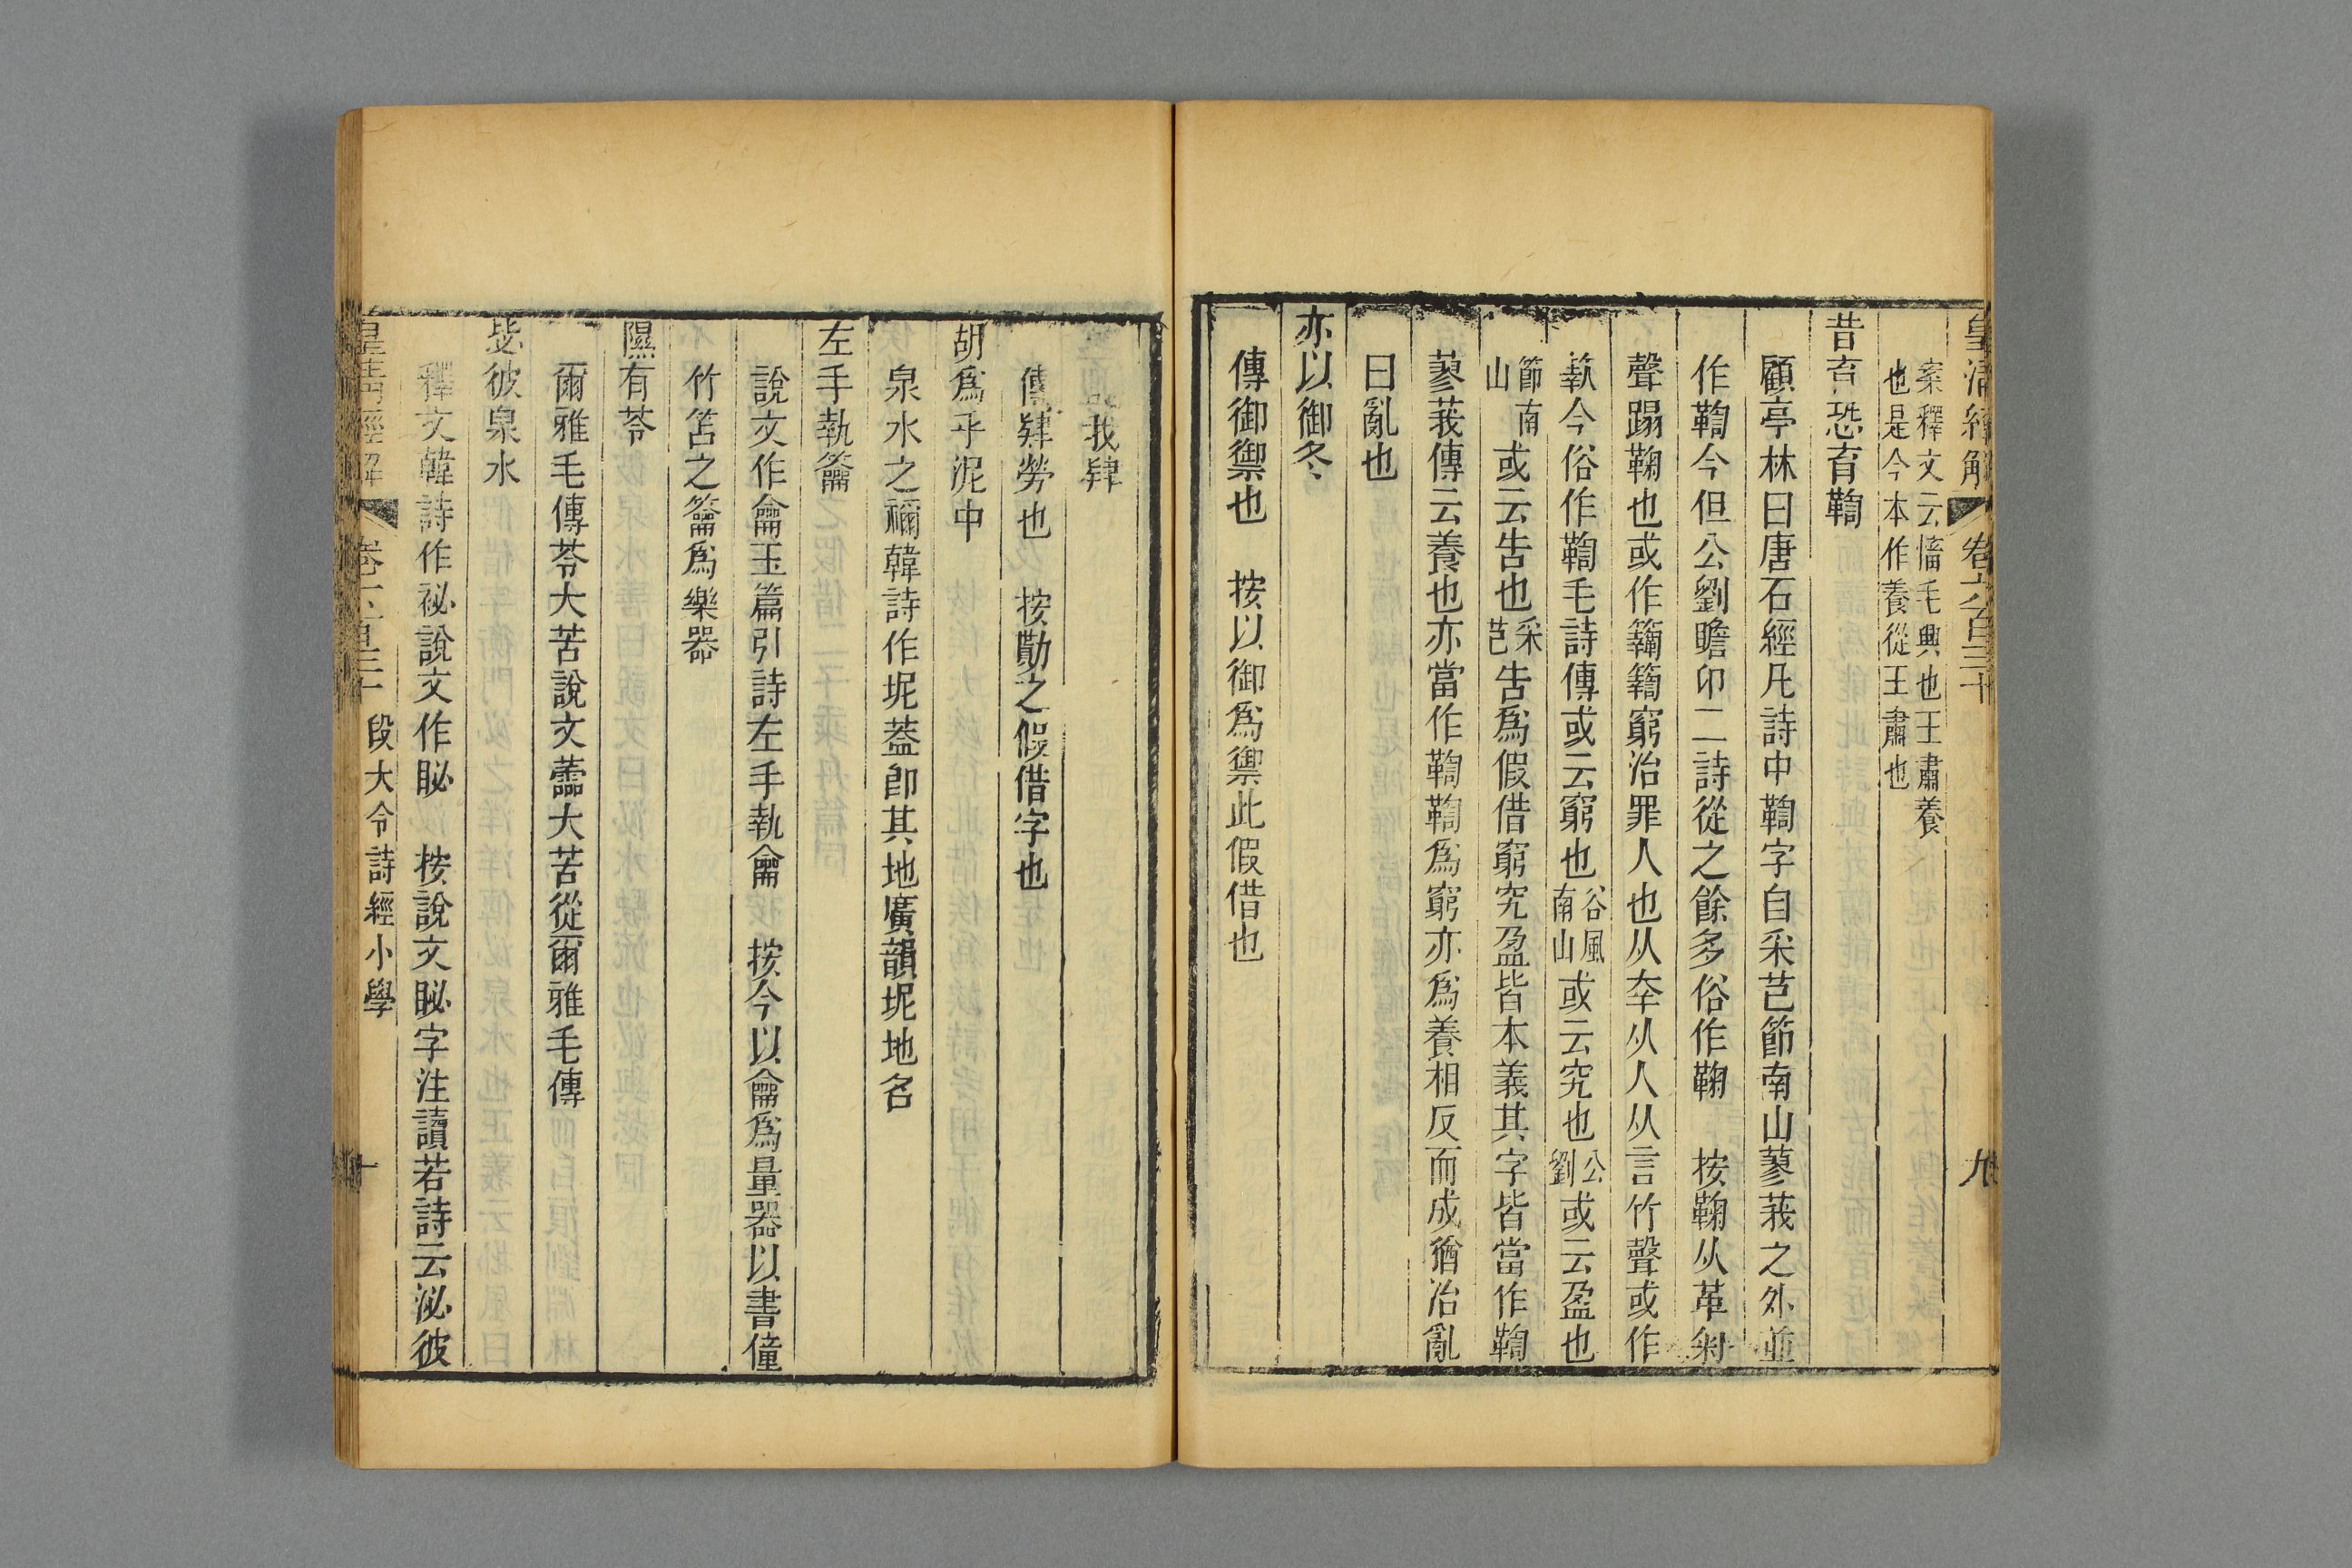 皇清經解 卷六百三十 九
案釋文云慉毛興也王肅養
也是今本作養從王肅也
昔育恐育鞫
顧亭林曰唐石經凡詩中鞫字自采芑節南山蓼莪之外並
作鞫今但公劉瞻卬二詩從之餘多俗作鞠　按鞠从革匊
聲蹋鞠也或作𥷚籟窮治罪人也从㚔从人从言竹聲或作
𥷚今俗作鞫毛詩傳或云窮也谷風南山或云究也公劉或云盈也
節南山或云告也采芑告爲假借窮究盈皆本義其字皆當作鞫
蓼莪傳云養也亦當作鞫鞫爲窮亦爲養相反而成猶治亂
曰亂也
亦以御冬
傳御禦也　按以御爲禦此假借也
我肄
傳肄勞也　按勩之假借字也
胡爲乎泥中
泉水之禰韓詩作坭葢卽其地廣韻坭地名
左手執籥
說文作龠玉篇引詩左手執龠　按今以龠爲量器以書僮
竹笘之籥爲樂器
隰有苓
爾雅毛傳苓大苦說文蘦大苦從爾雅毛傳
毖彼泉水
釋文韓詩作祕說文作䀣　按說文䀣字注讀若詩云泌彼
皇淸經解 卷六百三十 段大令詩經小學 十